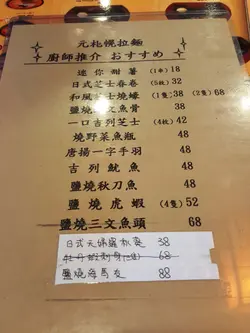 元札幌拉麵
廚師推介 おすすめ
迷你甜薯 (1串) 18
日式芝士春卷 (5枚) 32
和風芝士燒蠔 (1隻) 38 (2隻) 68
鹽燒三文魚骨 38
一口吉列芝士 (4枚) 42
燒野菜魚瓶 48
唐揚一字手羽 48
吉列魷魚 48
鹽燒秋刀魚 48
鹽燒虎蝦 (4隻) 52
鹽燒三文魚頭 68
日式元蹄 38
牡丹蝦刺身 68
鹽燒馬友 88